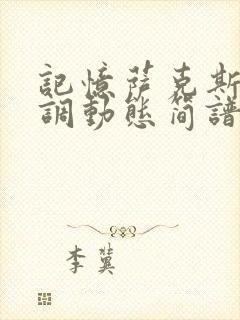 記憶薩克斯
調動態简譜
李冀